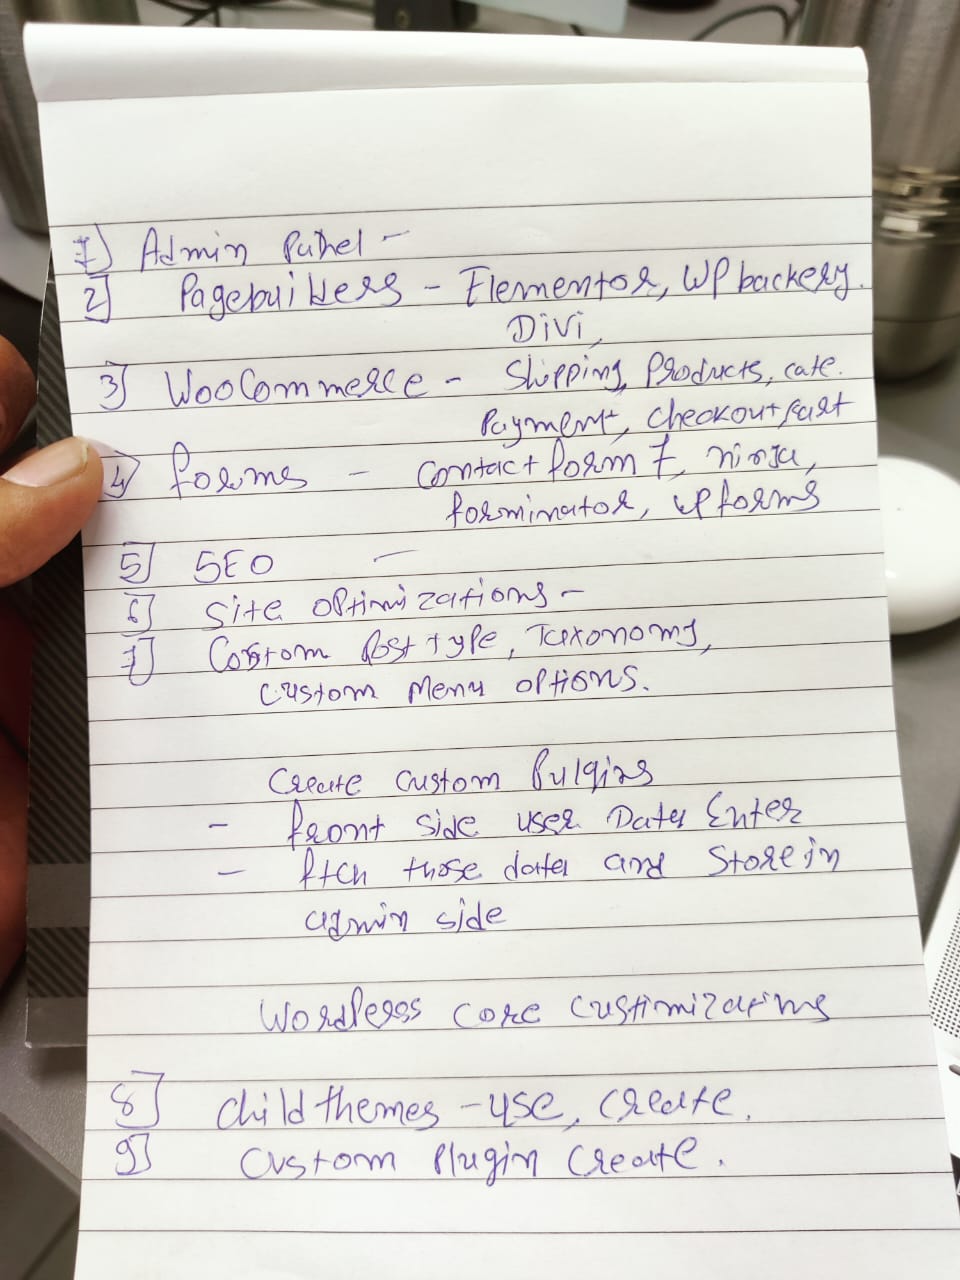 1) Admin Pannel -
2] Pagebuilders - Elementor, WP backery.
Divi,
3] WooCommerce - Shipping, Products, cate.
Payment, checkout part
4] forms - Contact form 7, ninja,
forminator, wp forms
5] SEO -
6] Site optimizations -
7] Costom Post type, Taxonomy,
custom Menu options.
Create custom Pulgins
- front side user Data Enter
- ftch those data and Store in
admin side
Wordpress core custimizations
8] child themes - use, create.
9] Custom Plugin Create.